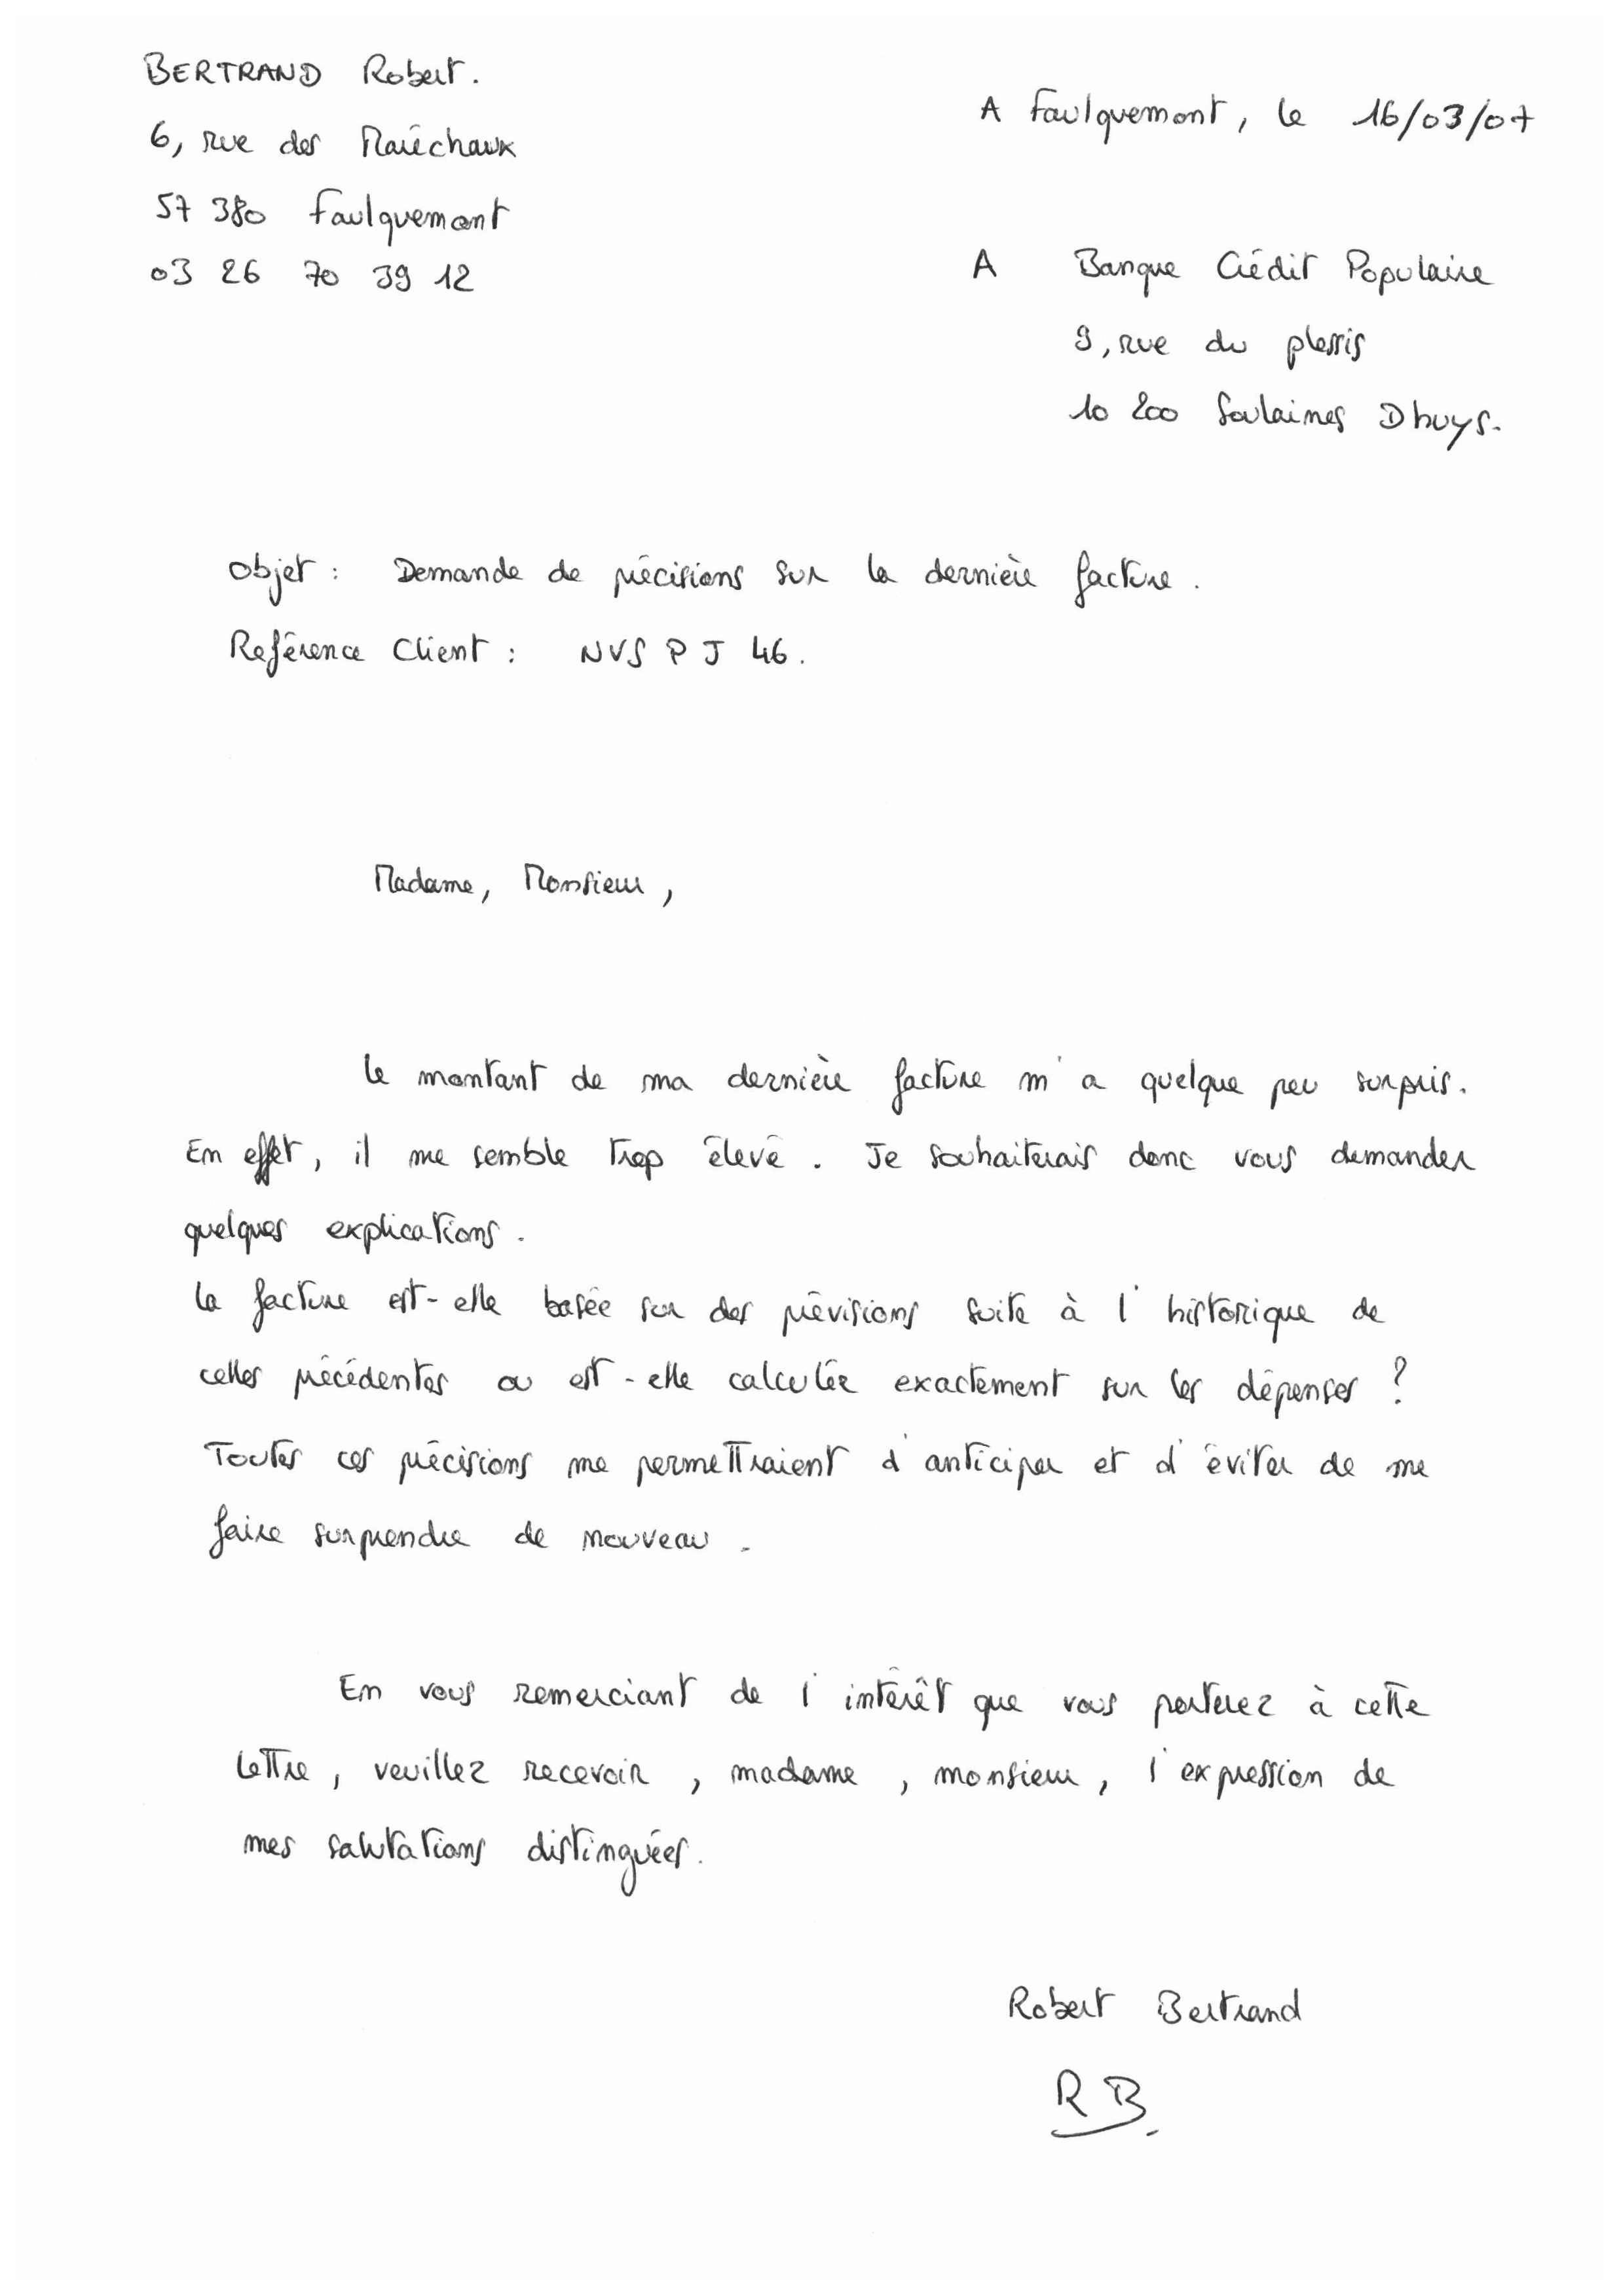 BERTRAND Robert.
6, rue des Maréchaux
57 380 Faulquemont
03 26 70 39 12
A Faulquemont, le 16/03/07
A Banque Crédit Populaire
9, rue du plessis
10 200 Soulaines Dhuys.
Objet : Demande de précisions sur la dernière facture.
Référence Client : NVS P J 46.
Madame, Monsieur,
Le montant de ma dernière facture m'a quelque peu surpris.
En effet, il me semble trop élevé. Je souhaiterais donc vous demander
quelques explications.
La facture est-elle basée sur des prévisions suite à l'historique de
celles précédentes ou est-elle calculée exactement sur les dépenses ?
Toutes ces précisions me permettraient d'anticiper et d'éviter de me
faire surprendre de nouveau.
En vous remerciant de l'intérêt que vous porterez à cette
lettre, veuillez recevoir, madame, monsieur, l'expression de
mes salutations distinguées.
Robert Bertrand
RB.